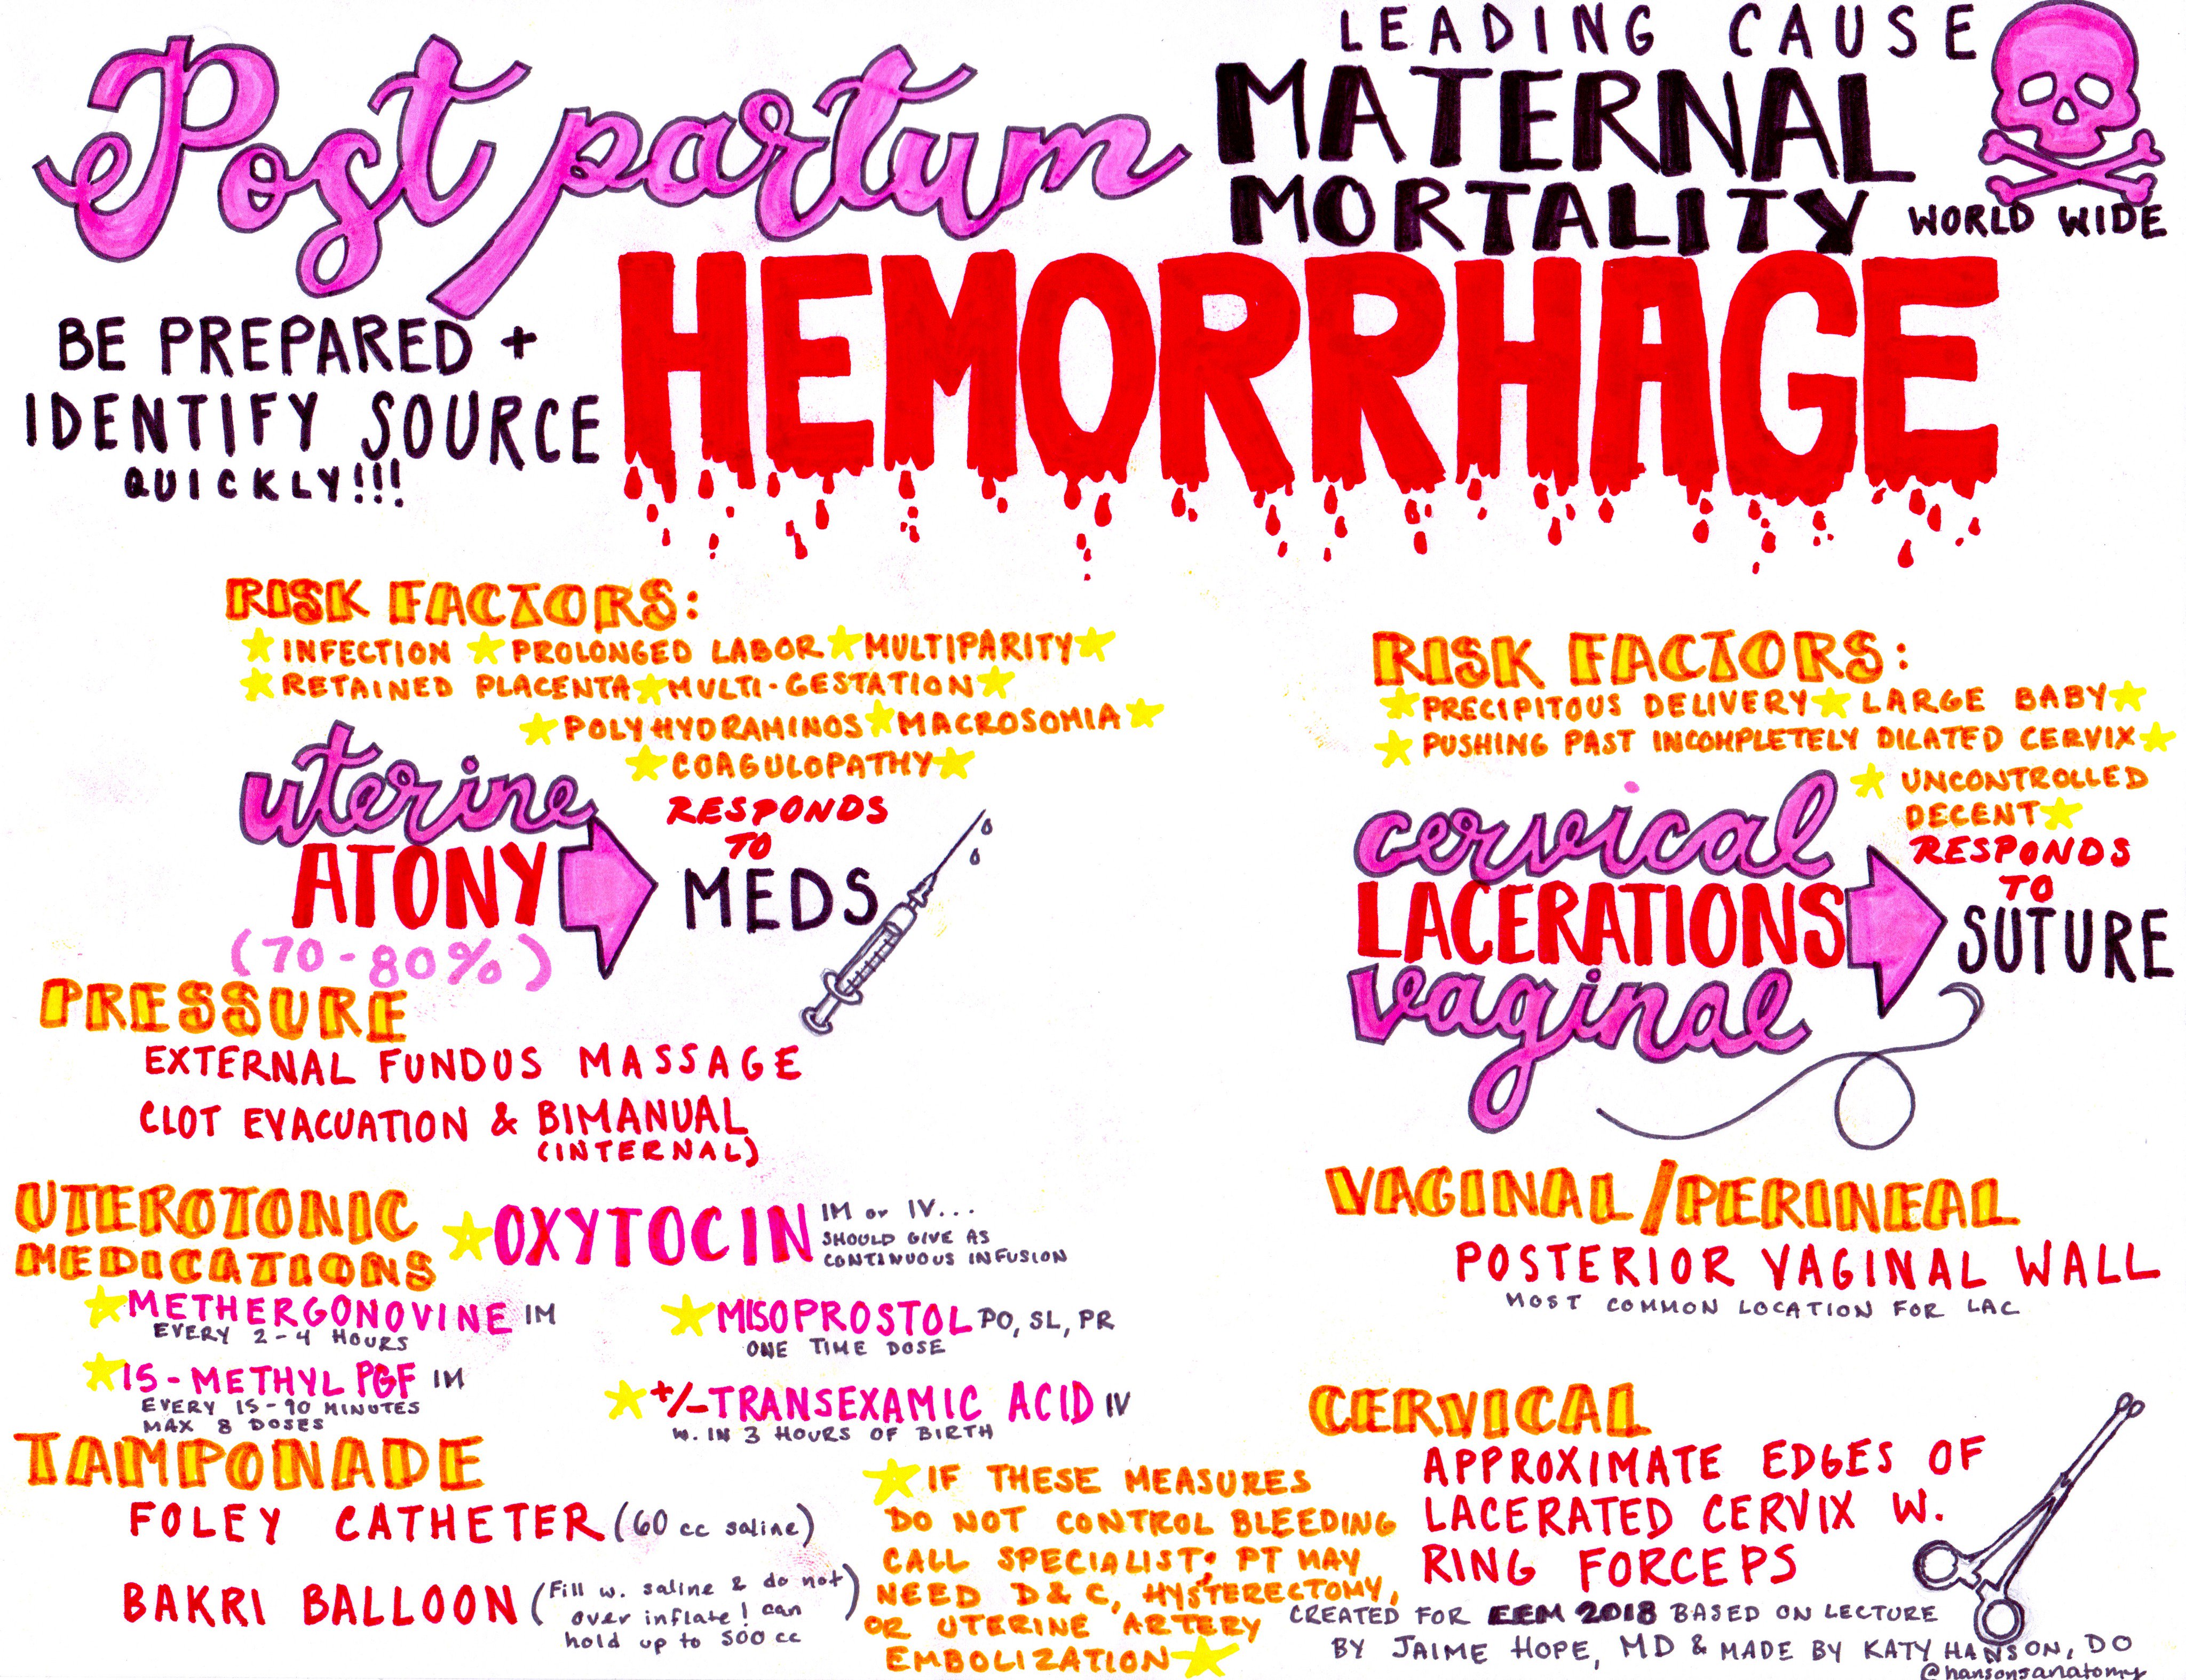 Postpartum
LEADING CAUSE
MATERNAL
MORTALITY WORLD WIDE
HEMORRHAGE
BE PREPARED +
IDENTIFY SOURCE
QUICKLY!!!
RISK FACTORS:
INFECTION PROLONGED LABOR MULTIPARITY
RETAINED PLACENTA MULTI-GESTATION
POLYHYDRAMINOS MACROSOMIA
COAGULOPATHY
uterine
ATONY
(70-80%)
RESPONDS
TO
MEDS
PRESSURE
EXTERNAL FUNDUS MASSAGE
CLOT EVACUATION & BIMANUAL
(INTERNAL)
UTEROTONIC
MEDICATIONS
OXYTOCIN IM or IV...
SHOULD GIVE AS
CONTINUOUS INFUSION
METHERGONOVINE IM
EVERY 2-4 HOURS
MISOPROSTOL PO, SL, PR
ONE TIME DOSE
15-METHYL PGF IM
EVERY 15-90 MINUTES
MAX 8 DOSES
+/- TRANSEXAMIC ACID IV
W. IN 3 HOURS OF BIRTH
TAMPONADE
FOLEY CATHETER (60 cc saline)
BAKRI BALLOON (Fill w. saline & do not
over inflate! can
hold up to 500 cc)
IF THESE MEASURES
DO NOT CONTROL BLEEDING
CALL SPECIALIST; PT MAY
NEED D & C, HYSTERECTOMY,
OR UTERINE ARTERY
EMBOLIZATION
RISK FACTORS:
PRECIPITOUS DELIVERY LARGE BABY
PUSHING PAST INCOMPLETELY DILATED CERVIX
UNCONTROLLED
DECENT
cervical
LACERATIONS
vaginal
RESPONDS
TO
SUTURE
VAGINAL/PERINEAL
POSTERIOR VAGINAL WALL
MOST COMMON LOCATION FOR LAC
CERVICAL
APPROXIMATE EDGES OF
LACERATED CERVIX W.
RING FORCEPS
CREATED FOR EEM 2018 BASED ON LECTURE
BY JAIME HOPE, MD & MADE BY KATY HANSON, DO
@hansonsanatomy